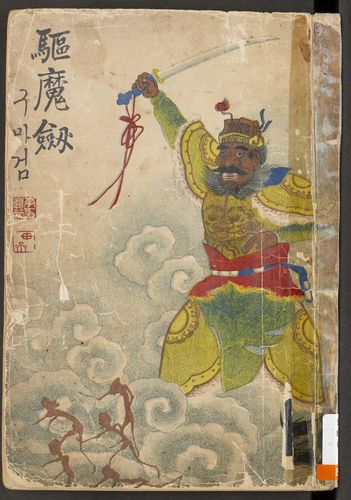 驅魔劍
구마검